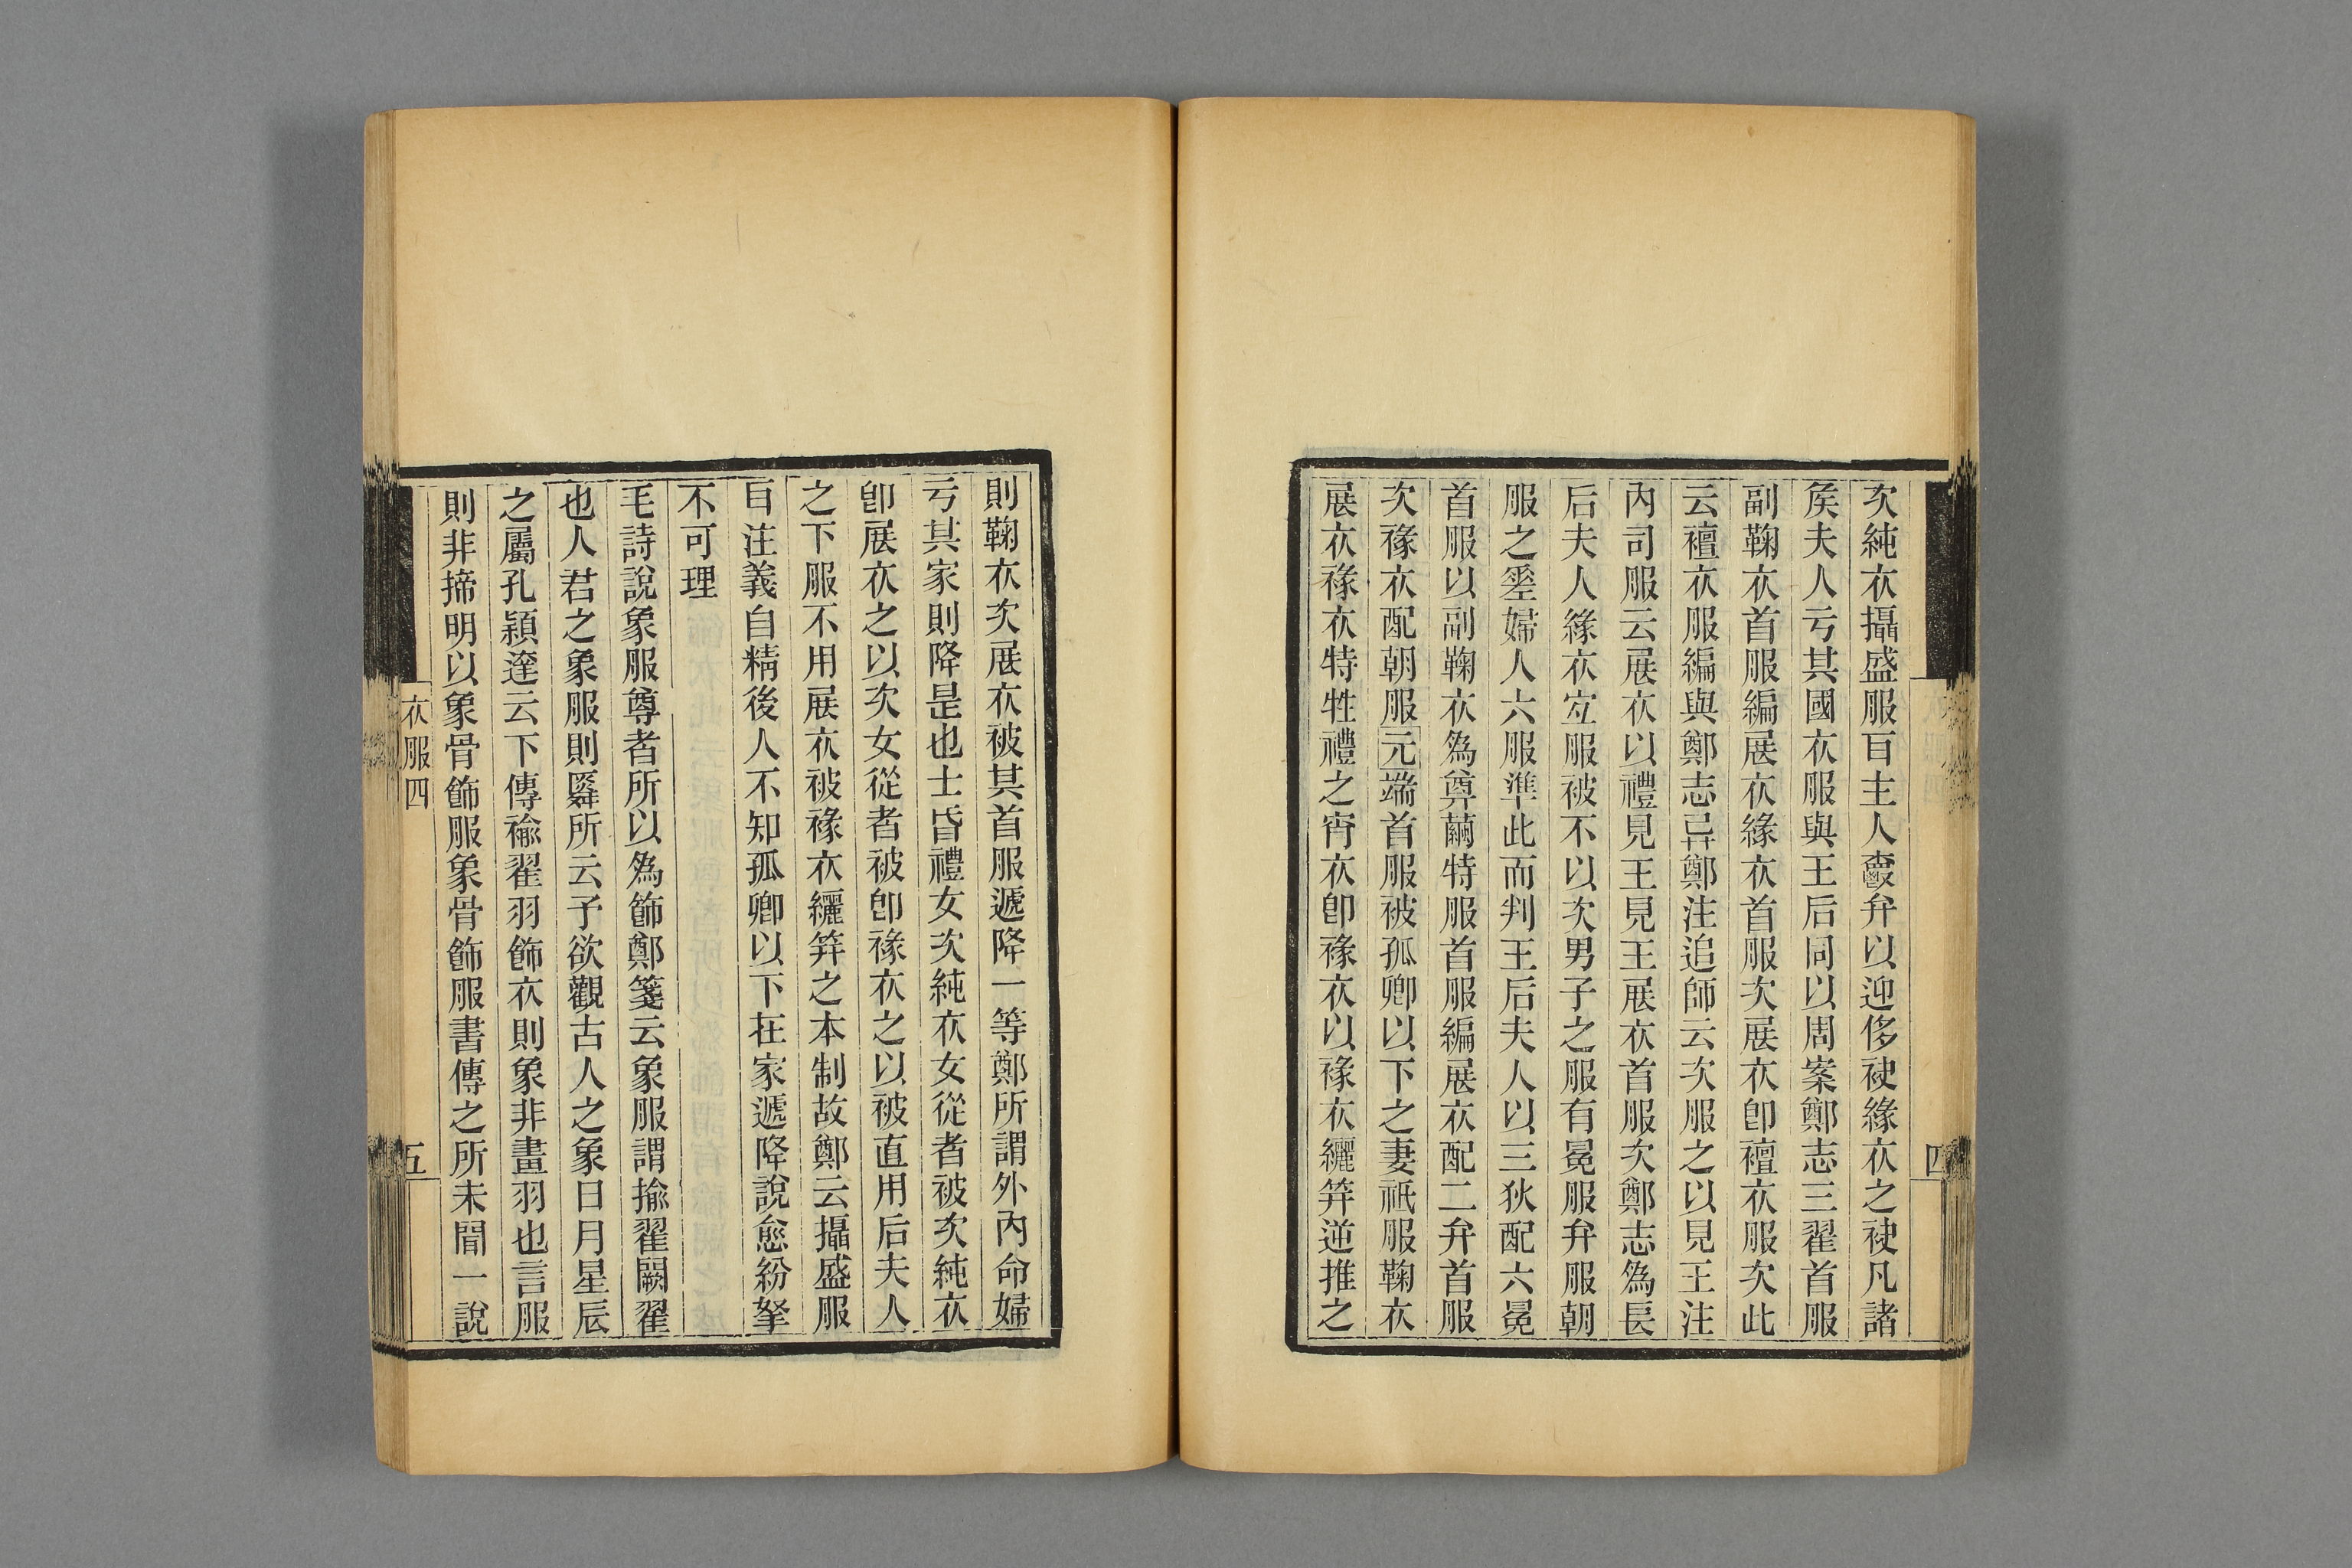 次純衣攝盛服㠯主人爵弁以迎侈䙝緣衣之䙝凡諸
矦夫人亏其國衣服與王后同以周案鄭志三翟首服
副鞠衣首服編展衣緣衣首服次展衣卽襢衣服次此
云襢衣服編與鄭志異鄭注追師云次服之以見王注
內司服云展衣以禮見王見王展衣首服次鄭志爲長
后夫人緣衣宐服被不以次男子之服有冕服弁服朝
服之䍣婦人六服準此而判王后夫人以三狄配六冕
首服以副鞠衣爲尊繭特服首服編展衣配二弁首服
次褖衣配朝服元端首服被孤卿以下之妻祇服鞠衣
展衣褖衣特牲禮之宵衣卽褖衣以褖衣纚笄逆推之
四
則鞠衣次展衣被其首服遞降一等鄭所謂外內命婦
亏其家則降是也士昏禮女次純衣女從者被次純衣
卽展衣之以次女從者被卽褖衣之以被直用后夫人
之下服不用展衣被褖衣纚笄之本制故鄭云攝盛服
㠯注義自精後人不知孤卿以下在家遞降說愈紛拏
不可理
毛詩說象服尊者所以爲飾鄭箋云象服謂揄翟闕翟
也人君之象服則舜所云予欲觀古人之象日月星辰
之屬孔穎達云下傳褕翟羽飾衣則象非畫羽也言服
則非揥明以象骨飾服象骨飾服書傳之所未聞一說
衣服四
五